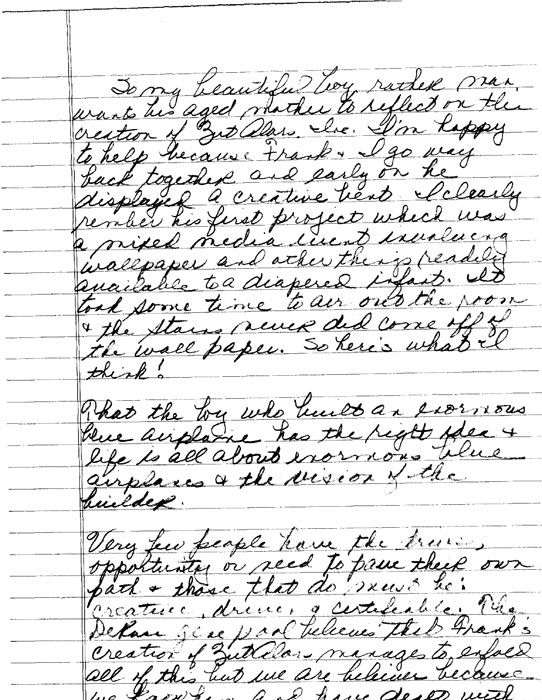 So my beautiful boy, rather man,
wants his aged mother to reflect on the
creation of Zut Alors, Inc. I'm happy
to help because Frank & I go way
back together and early on he
displayed a creative bent. I clearly
rember his first project which was
a mixed media event involving
wallpaper and other things readily
available to a diapered infant. It
took some time to air out the room
& the stains never did come off of
the wall paper. So here's what I
think!
That the boy who built an enormous
blue airplane has the right idea &
life is all about enormous blue
airplanes & the vision of the
builder.
Very few people have the
opportunity or need to pave their own
path & those that do must be:
creative, driven, & certifiable. The
gene pool believes that Frank's
creation of Zut Alors manages to enfold
all of this but we are believer because
we knew him and have dealt with